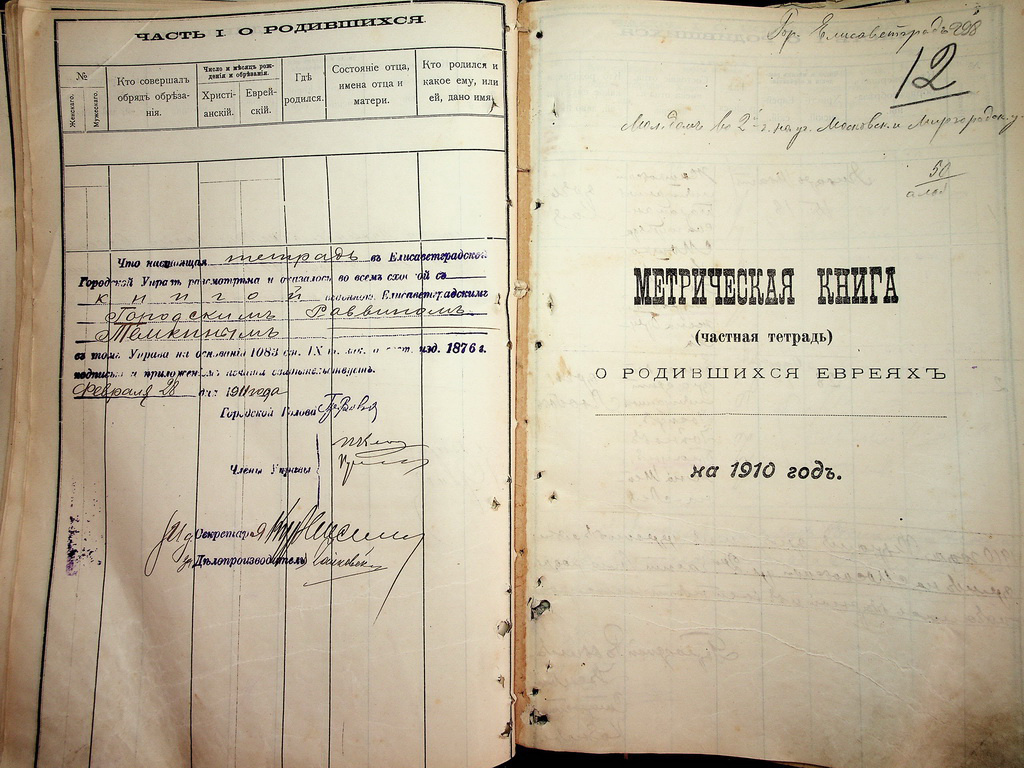 ЧАСТЬ I. О РОДИВШИХСЯ.
№
Женскаго.
Мужескаго.
Кто совершалъ
обрядъ обрѣза-
нія.
Число и мѣсяцъ рож-
денія и обрѣзанія.
Христі-
анскій.
Еврей-
скій.
Гдѣ
родился.
Состояніе отца,
имена отца и
матери.
Кто родился и
какое ему, или
ей, дано имя.
Что настоящая тетрадь въ Елисаветградской
Городской Управѣ разсмотрѣна и оказалось во всемъ сход ой съ
книгой Елисаветградскимъ
Городскимъ Раввиномъ
Темкинымъ
въ томъ Управа на основаніи 1083 ст. IX т. изд. 1876 г.
подписью и приложеніемъ печати свидѣтельствуетъ.
Февраля 28 дня 1911 года
Городской Голова
Члены Управы
Секретарь
Дѣлопроизводитель
Гор. Елисаветградъ 298
12
Мол. домъ во 2 ч. на уг. Московск. и Миргородск. у.
50
МЕТРИЧЕСКАЯ КНИГА
(частная тетрадь)
О РОДИВШИХСЯ ЕВРЕЯХЪ
на 1910 годъ.